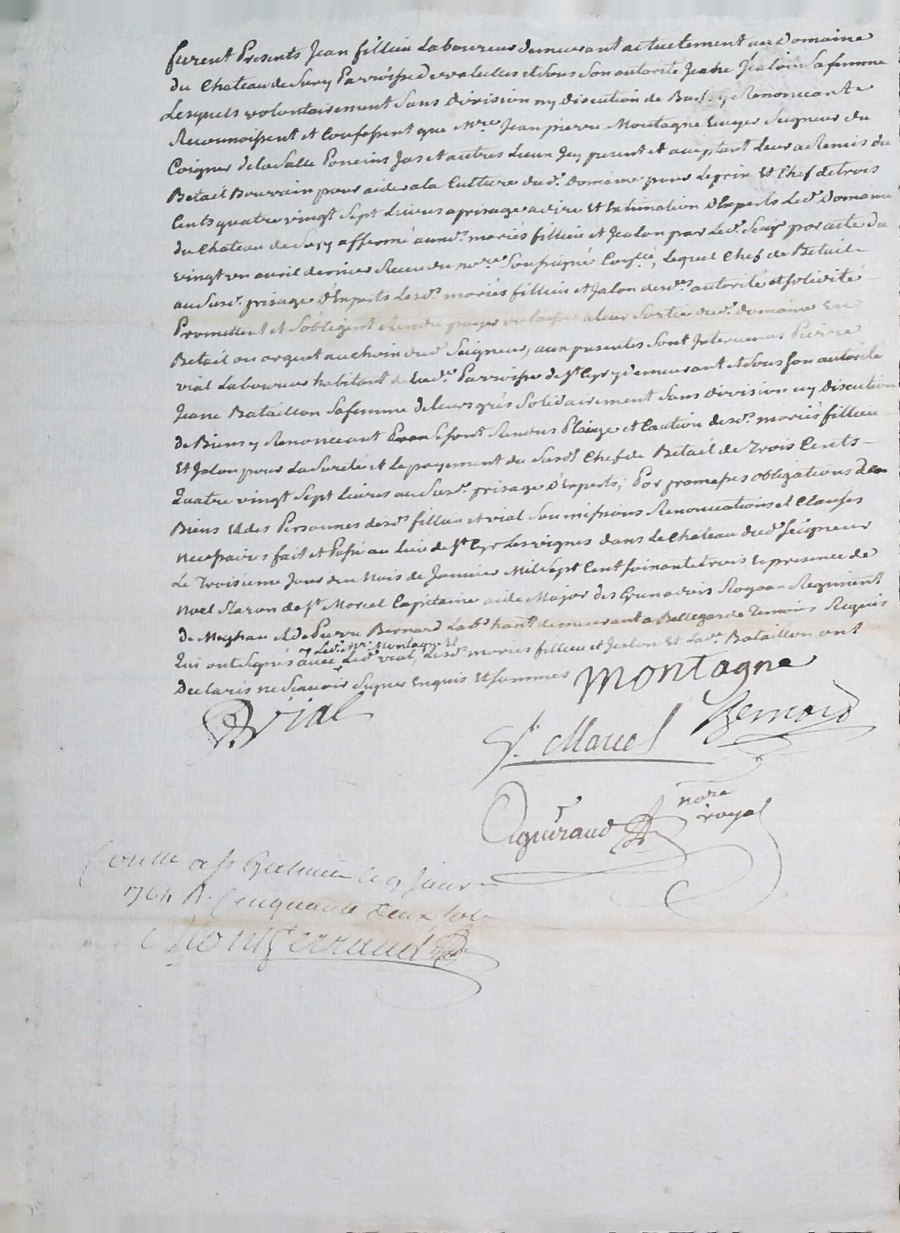 furent Presents Jean fillieu Laboureur demeurant actuelement au Domaine
du Chateau de Sury Parroisse de et sous son autorité Jeane Jealon sa femme
Lesquels volontairement sans Division ny Discution de Biens y Renonceant
Reconnoissent et Confessent que Mre Jean pierre Montagne Ecuyer Seigneur du
Coigner de la Salle Poncins Jas et autres Lieux Jcy present et acceptant leur a Remis du
Betail Bourrain pour aider a la Culture dud. Domaine pour le prix et Chef de trois
Cents quatre vingt Sept Livres a prisage a dire et Estimation d'Experts Led. Domaine
du Chateau de Sury affermé auxd. mariés fillieu et Jealon par led. Seigr par acte du
vingt un avril dernier Receu du nore Soussigné lequel Chef de Betail
au Susd. prisage d'Experts Lesd. mariés fillieu et Jalon desd. autorité et solidité
Promettent et s'obligent Rendre payer a leur Sortie dud. domaine En
Betail ou argent au choix dud. Seigneur, aux presentes Sont Jntervenus Pierre
vial Laboureur habitant de lad. Parroisse de St Cyr y demeurant et sous son autorité
Jeane Bataillon sa femme de leurs grés Solidairement Sans Division ny Discution
de Biens y Renonceant se sont Rendus Pleige et Caution desd. mariés fillieu
Et Jalon pour la Sureté et le payement du Susd. Chef de Betail de Trois Cents
Quatre vingt Sept livres au Susd. prisage d'Experts; Par promesses obligations de
Biens Et des Personnes desd. fillieu et vial Soumissions Renonciations et Clauses
necessaires fait et Passé au lieu de St Cyr Les vignes dans le Chateau dud. Seigneur
Le Troisieme Jour du Mois de Janvier Mil Sept Cent Soixante trois En presence de
Noel de St Marcel Capitaine aide Major des Grenadiers Royaux Regiment
de et de Pierre Bernard Labr hant demeurant a Bellegarde Temoins Requis
Led. Sr. Montagne Et
Qui ont Signés avec Led. vial, Lesd. mariés fillieu et Jealon Et lad. Bataillon ont
Declarés ne Scavoir Signer Enquis Et Sommés Montagne
P. Vial
St. Marcel Bernard
Aguiraud nore
royal
Conllé a St Galmier le 9 Janvr
1764 R. Cinquante deux sols
Montferrand